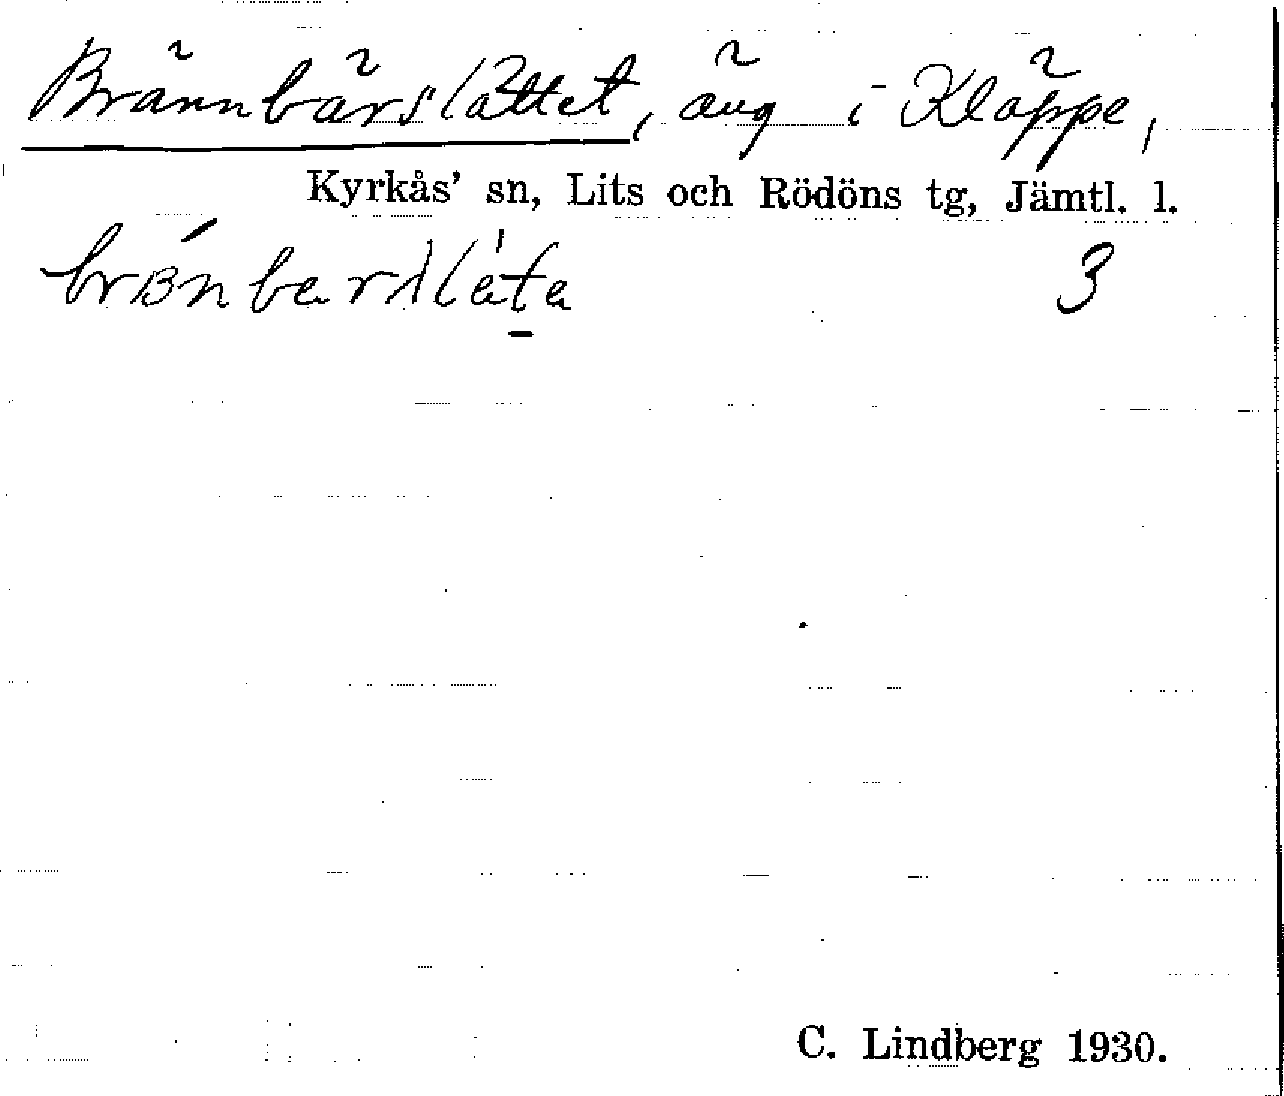 Brännbärslåttet, äng i Kläppe,
Kyrkås' sn, Lits och Rödöns tg, Jämtl. l.
3
C. Lindberg 1930.